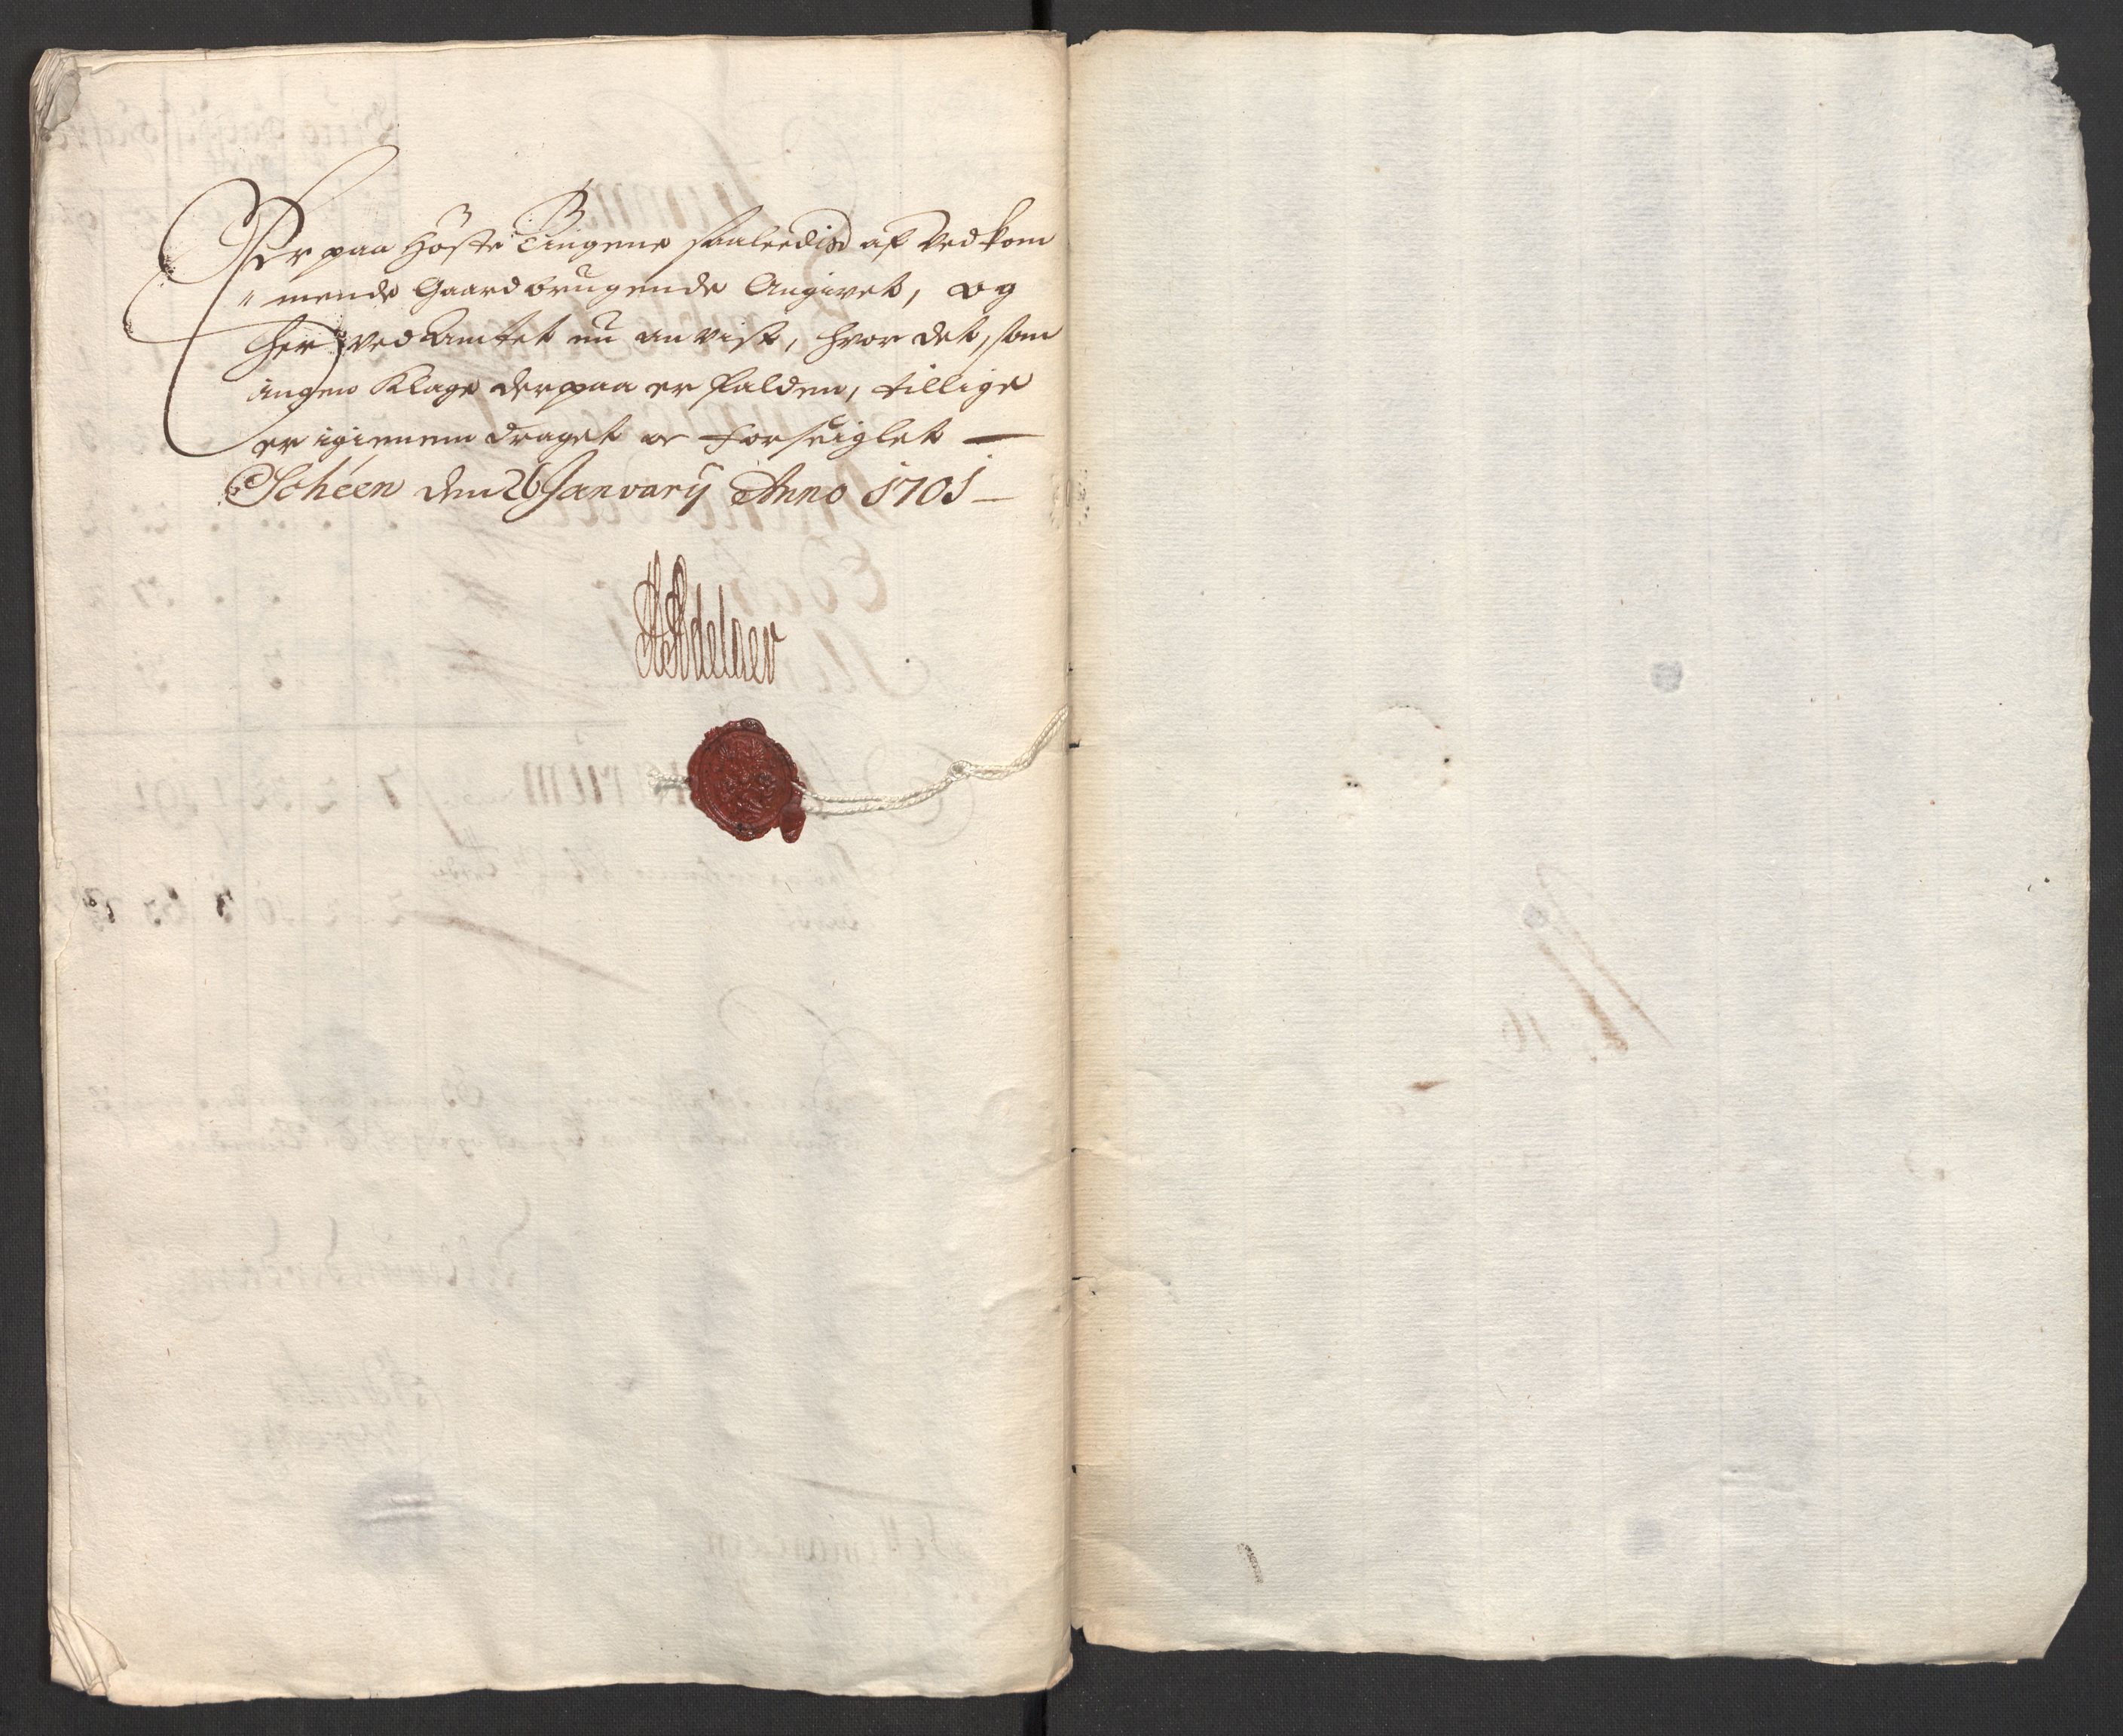 Er paa Höste Tingene saaleedis af Vedkom
" mende Gaard brugende Angivet, og
her ved Amtet nu anvist, hvor det, som
ingen Klage derpaa er falden, tillige
er igiennem draget oc forseiglet —
Scheen den 26 Januarij Anno 1701 —
HAdelaer